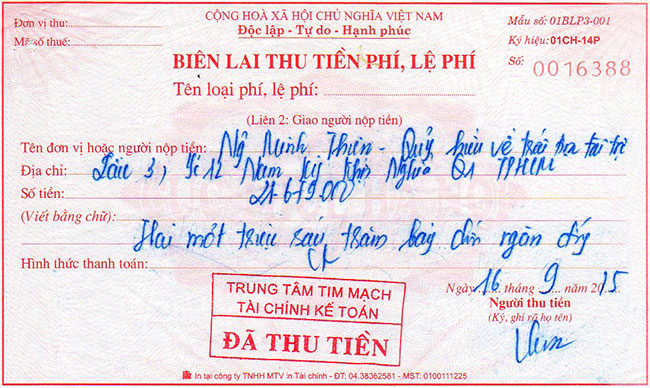 CỘNG HOÀ XÃ HỘI CHỦ NGHĨA VIỆT NAM
Độc lập - Tự do - Hạnh phúc
Đơn vị thu:
Mã số thuế:
Mẫu số: 01BLP3-001
Ký hiệu: 01CH-14P
Số: 0016388
BIÊN LAI THU TIỀN PHÍ, LỆ PHÍ
Tên loại phí, lệ phí:
(Liên 2: Giao người nộp tiền)
Tên đơn vị hoặc người nộp tiền: Ng Minh Thiên - Quỹ hiểu về trái tim tài trợ
Địa chỉ: Lầu 3, Số 12 Nam Kỳ Khởi Nghĩa Q1 TPHCM
Số tiền: 21.679.000
(Viết bằng chữ):
Hai mốt triệu sáu trăm bảy chín ngàn
Hình thức thanh toán:
Ngày 16 tháng 9 năm 2015
Người thu tiền
(Ký, ghi rõ họ tên)
TRUNG TÂM TIM MẠCH
TÀI CHÍNH KẾ TOÁN
ĐÃ THU TIỀN
In tại công ty TNHH MTV in Tài chính - ĐT: 04.38362581 - MST: 0100111225